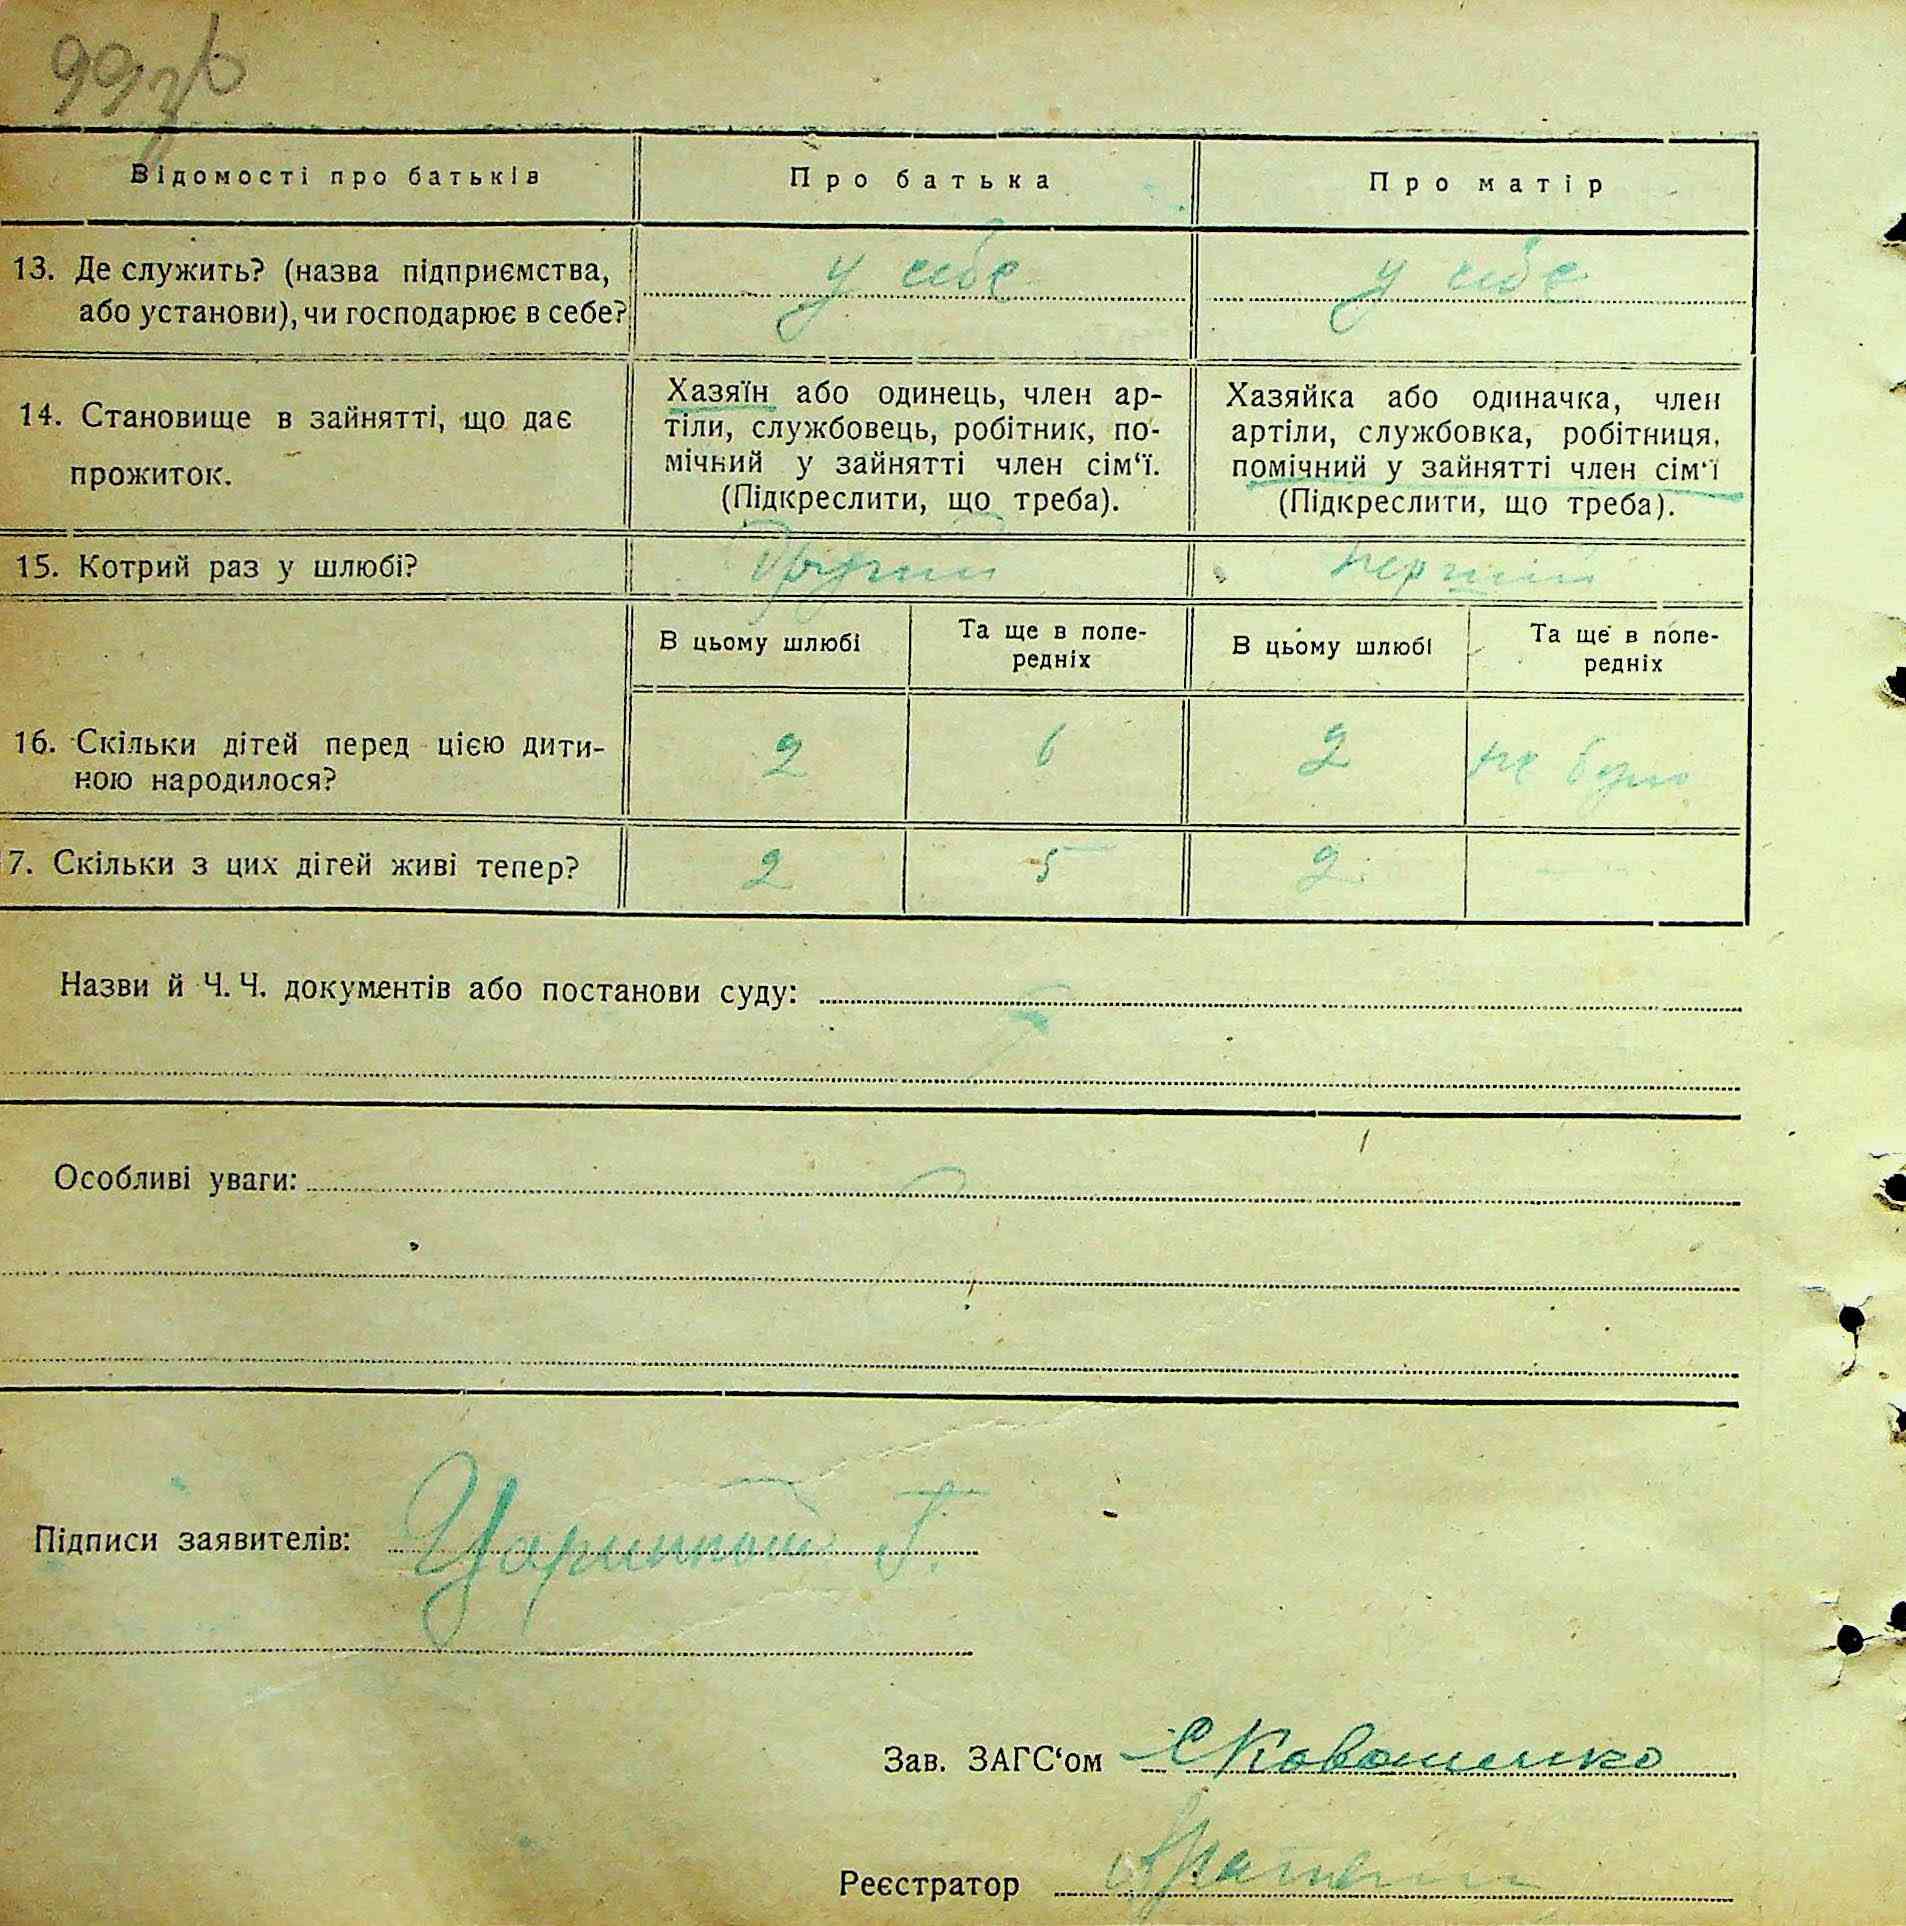 99зв
Відомості про батьків
Про батька
Про матір
13. Де служить? (назва підприємства,
або установи), чи господарює в себе?
у себе
у себе
14. Становище в зайнятті, що дає
прожиток.
Хазяїн або одинець, член ар-
тіли, службовець, робітник, по-
мічний у зайнятті член сім‘ї.
(Підкреслити, що треба).
Хазяйка або одиначка, член
артіли, службовка, робітниця,
помічний у зайнятті член сім‘ї
(Підкреслити, що треба).
15. Котрий раз у шлюбі?
Другий
перший
В цьому шлюбі
Та ще в попе-
редніх
В цьому шлюбі
Та ще в попе-
редніх
16. Скільки дітей перед цією дити-
ною народилося?
2
6
2
не було
7. Скільки з цих дітей живі тепер?
2
5
2
—
Назви й Ч. Ч. документів або постанови суду:
Особливі уваги:
Підписи заявителів:
Зав. ЗАГС‘ом
Реєстратор